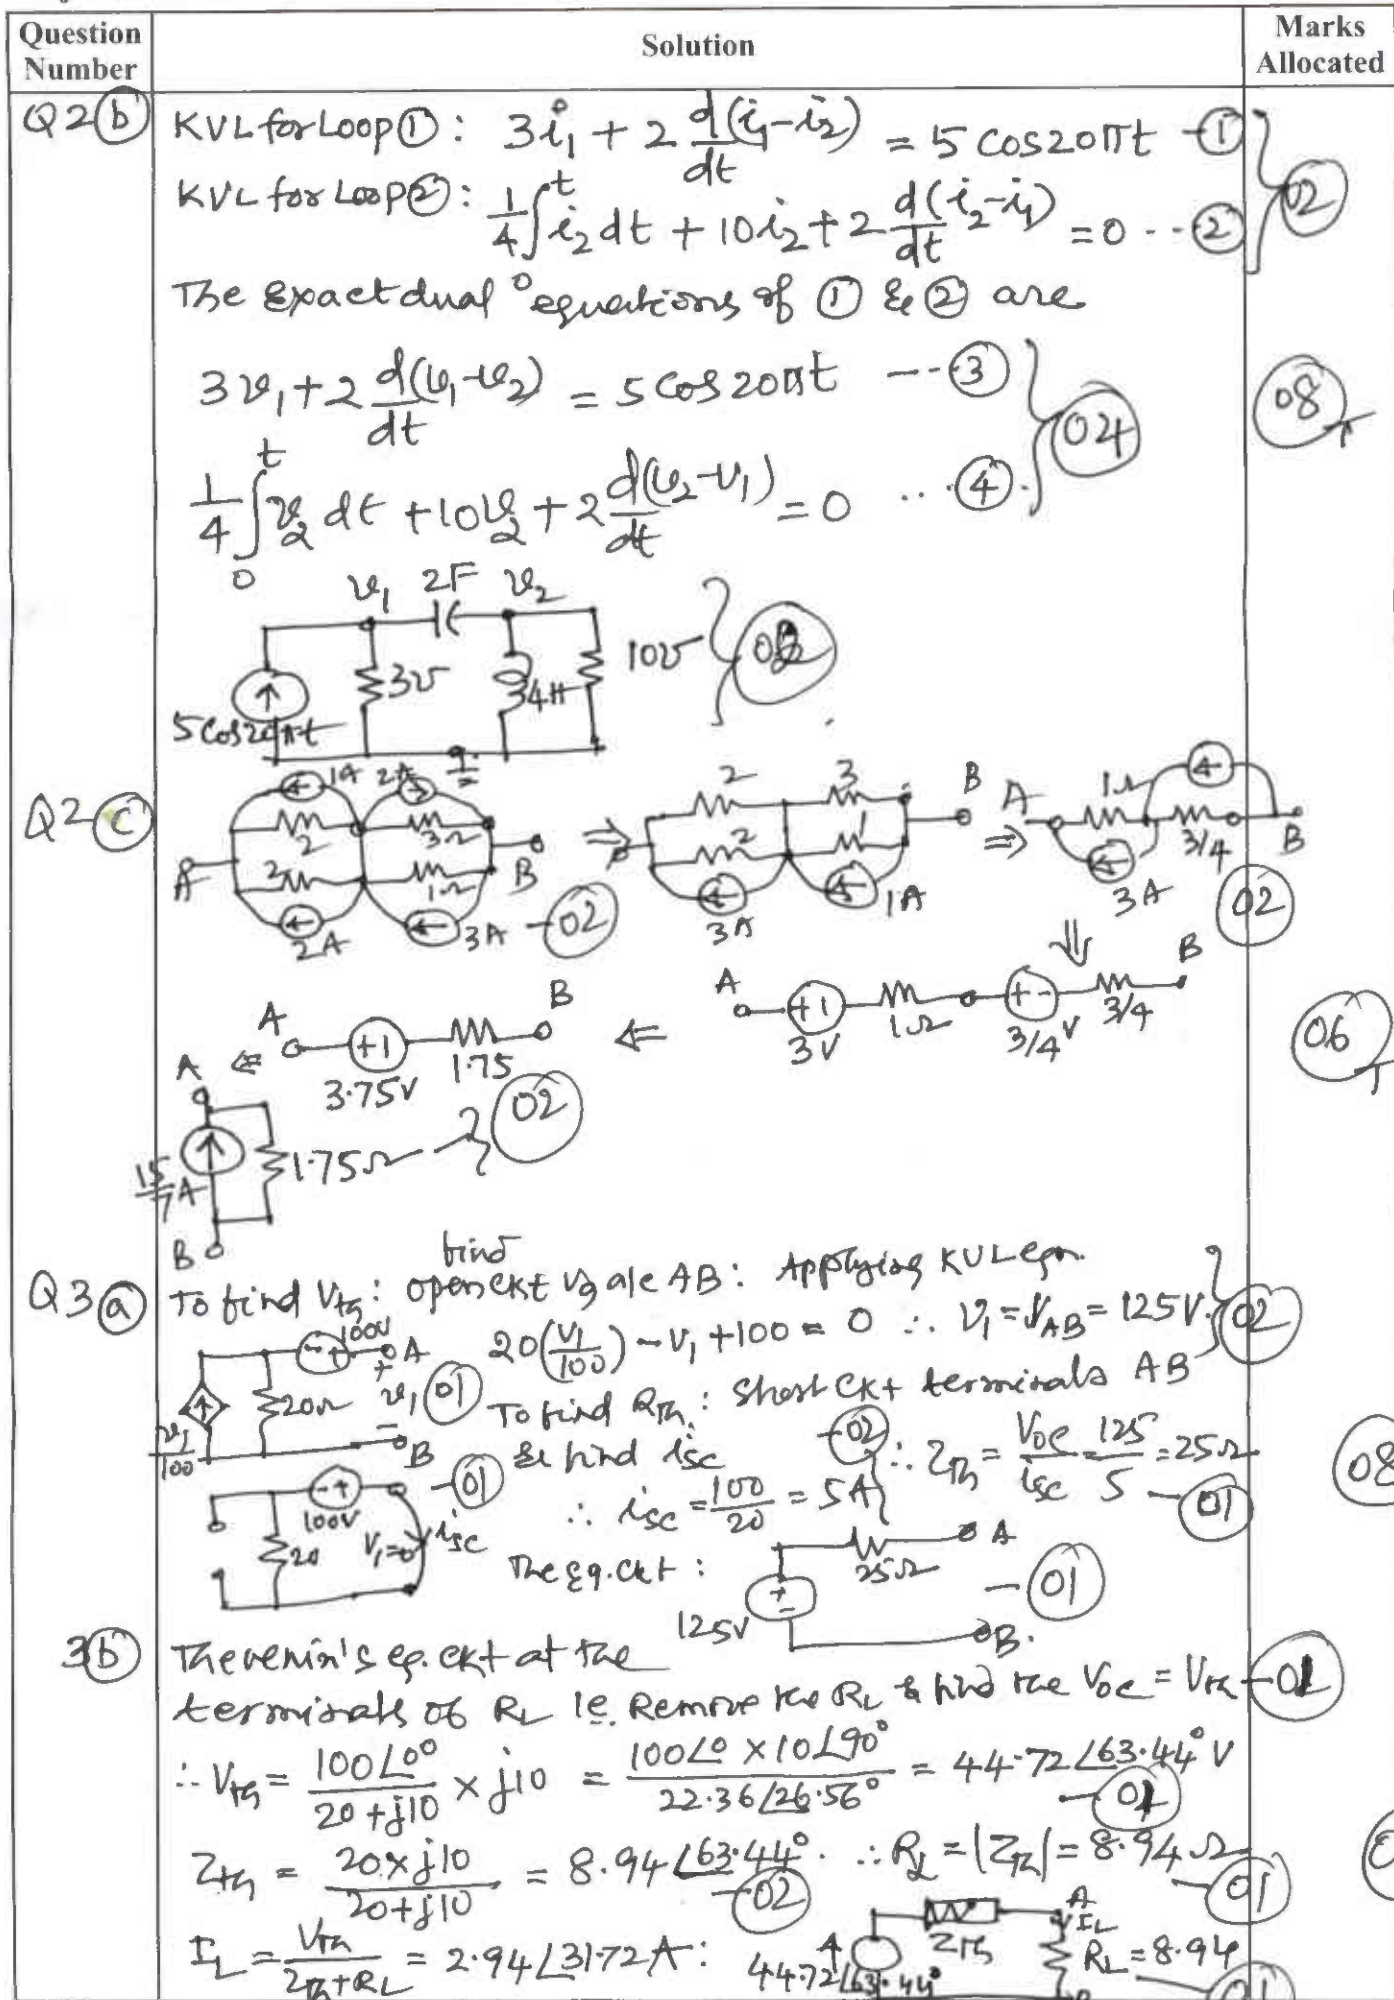 Question Number
Solution
Marks Allocated
Q2(b)
KVL for Loop①: 3i₁ + 2 d(i₁-i₂)/dt = 5 cos20πt -①
02
KVL for Loop②: 1/4 ∫₀ᵗ i₂ dt + 10i₂ + 2 d(i₂-i₁)/dt = 0 --②
The Exact dual equations of ① & ② are
3v₁ + 2 d(v₁-v₂)/dt = 5 cos 20πt --③
04
08
1/4 ∫₀ᵗ v₂ dt + 10v₂ + 2 d(v₂-v₁)/dt = 0 ...④
v₁ 2F v₂
3℧ 4H 10℧
5 cos20πt
Q2(c)
1A 2A
2 3Ω
A 2 1Ω B
2A 3A -02
⇒
2 3 B
2 1
3A 1A
⇒
A 1Ω 3/4 B
3A 02
⇓
A + - 1Ω + - 3/4 B
3V 3/4V
⇐
A + - B
3.75V 1.75
⇐
06
A
15/7 A 1.75Ω 02
B
find
Q3(a) To find Vth: open ckt vg a/c AB: Applying KVL eqn.
100V A 20(V₁/100) - V₁ + 100 = 0 ∴ V₁ = VAB = 125V. 02
v₁/100 20Ω v₁ 01 B
To find Rth: Short ckt terminals AB
& find isc -02 ∴ Zth = Voc/isc = 125/5 = 25Ω
08
-01
∴ isc = 100/20 = 5A -01
100V 20 V₁=0 isc
The Eq. ckt: 125V 25Ω A B. -01
3(b) Thevenin's eq. ckt at the
terminals of RL ie. Remove the RL & find the Voc = Vth -01
∴ Vth = 100∠0°/20+j10 × j10 = 100∠0 × 10∠90°/22.36∠26.56° = 44.72∠63.44° V
-01
Zth = 20×j10/20+j10 = 8.94∠63.44°. ∴ RL = |Zth| = 8.94Ω
-02
-01
IL = Vth/Zth+RL = 2.94∠31.72 A:
44.72∠63.44° Zth A IL RL = 8.94
01